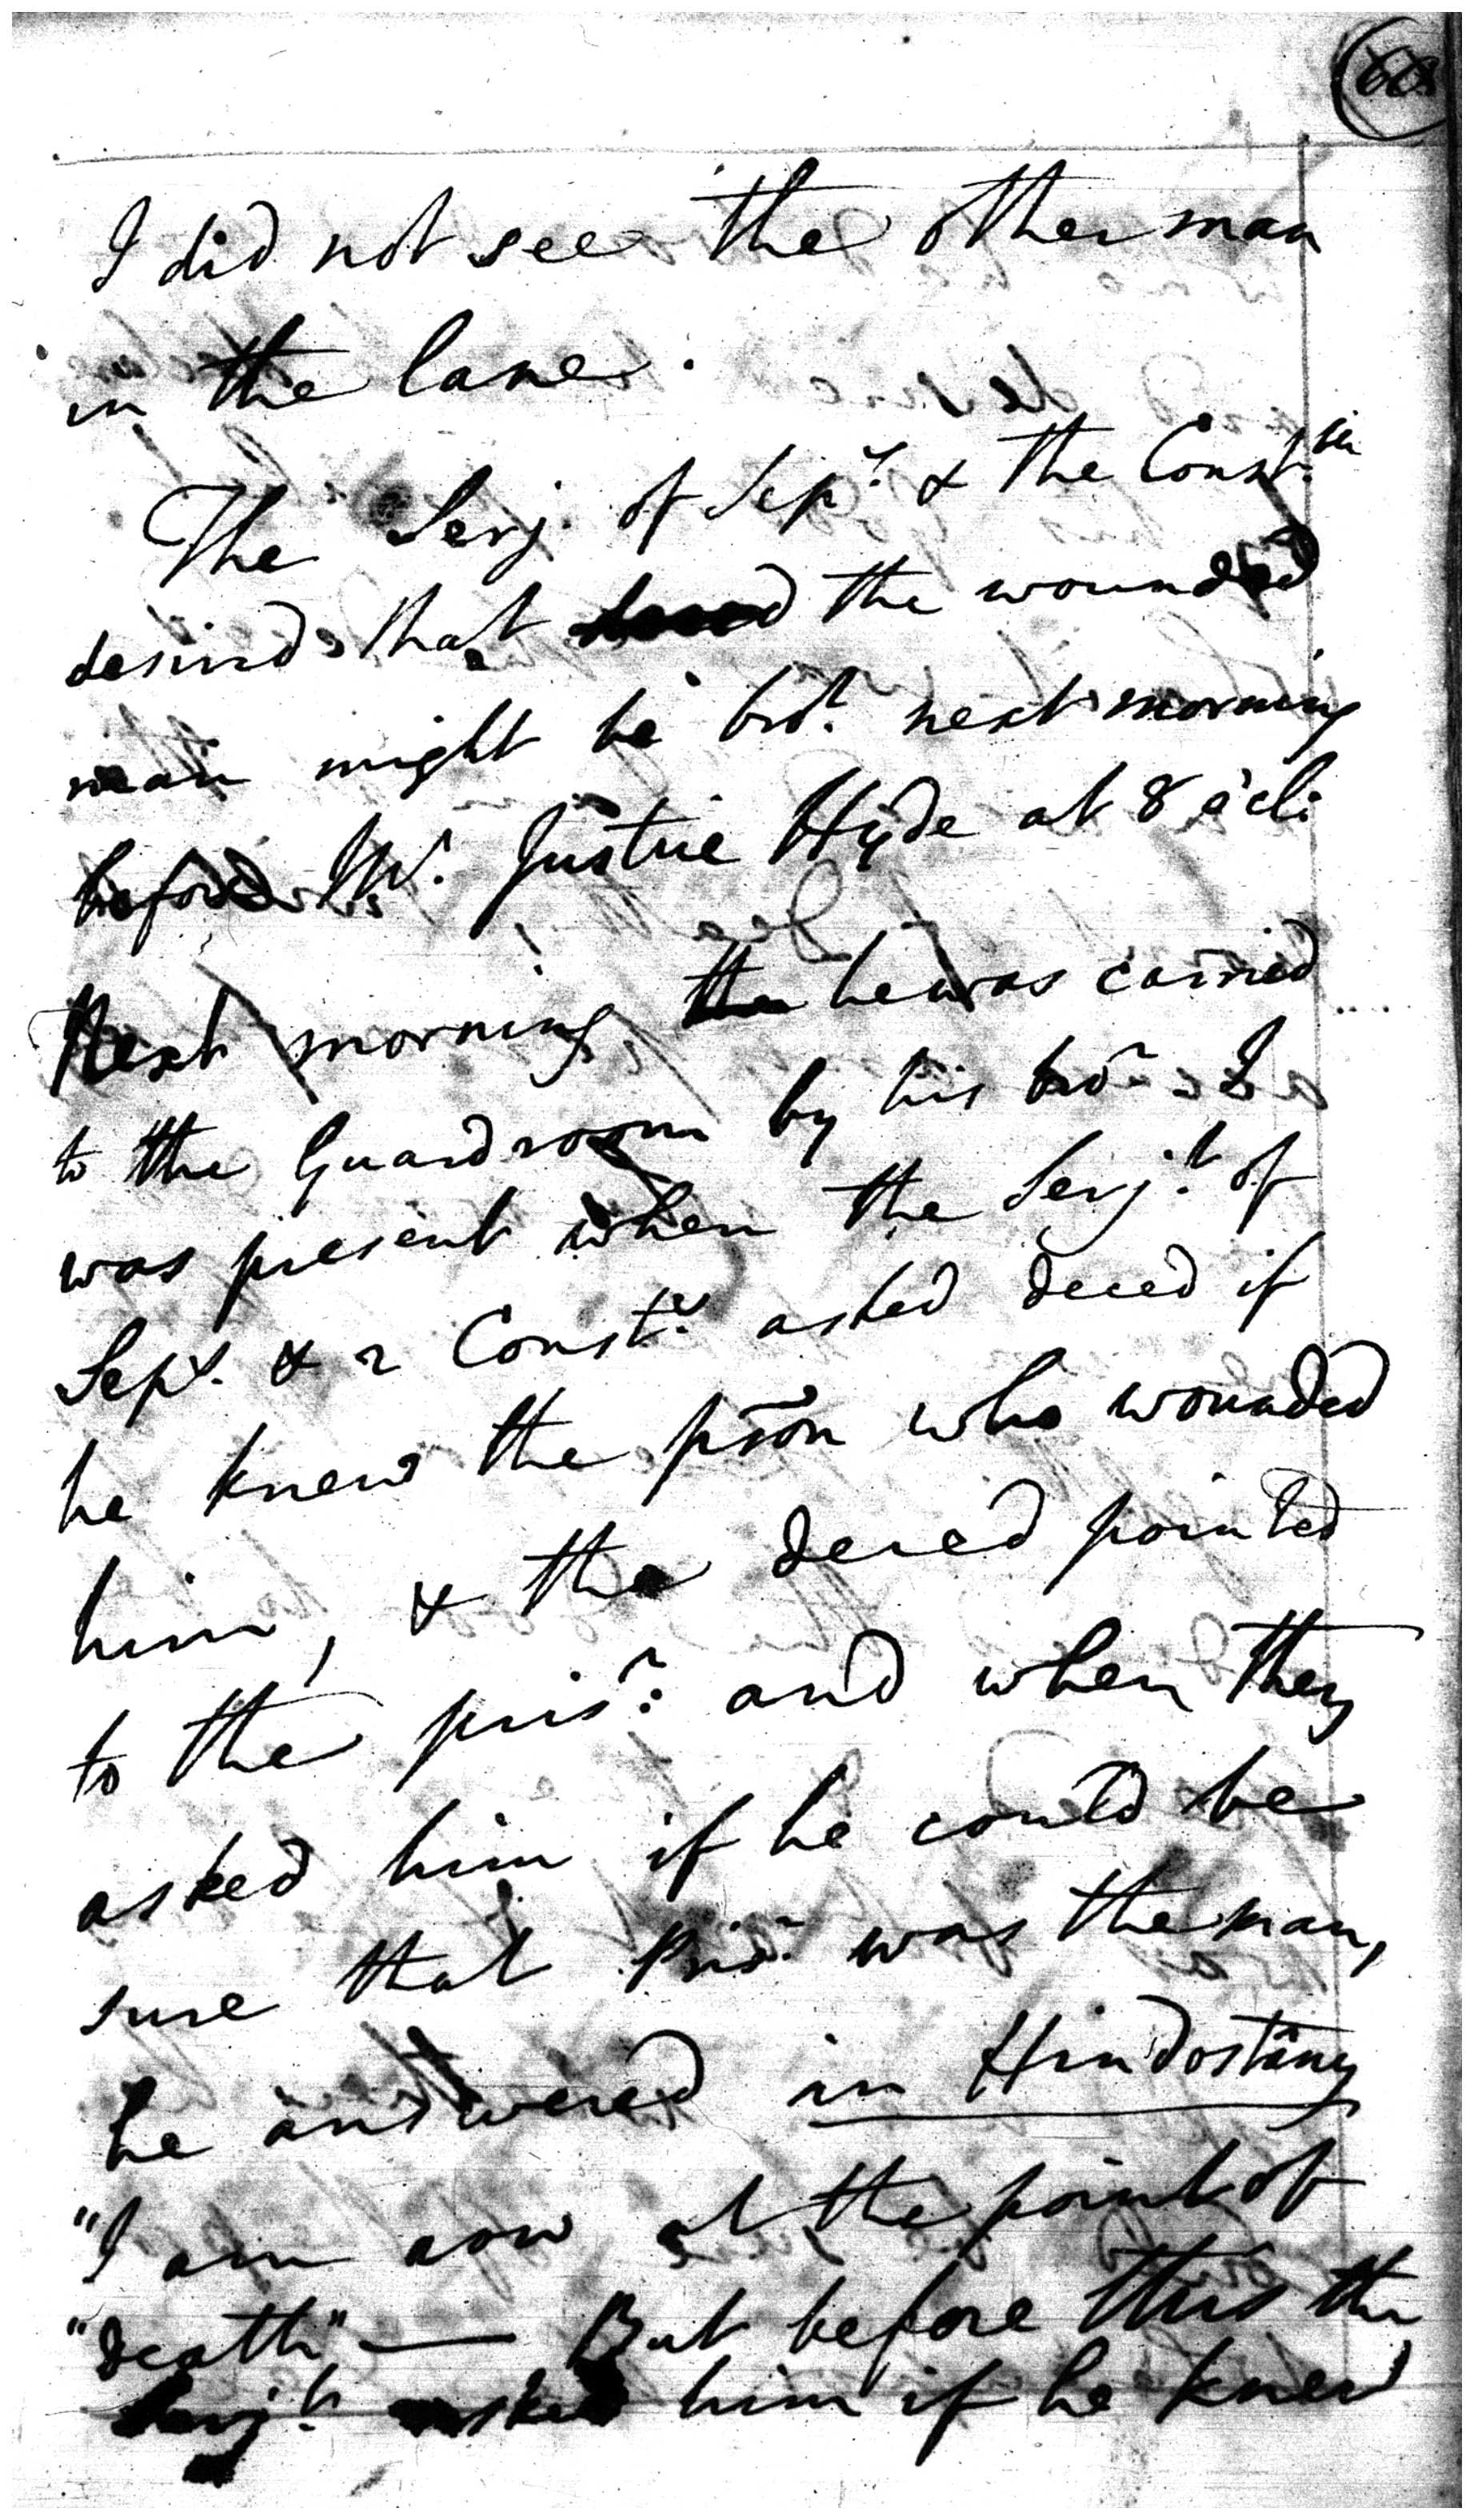 I did not see the other man
in the lane.
The Serj. of Sepr. & the Const.
desired that the wounded
man might be brot. next morning
before Mr. Justice Hyde at 8 o'cl:
Next morning he was carried
to the Guardroom by his bror. I
was present when the Serjt. of
Seps. & 2 Consts. asked deced if
he knew the pson who wounded
him, & the deced pointed
to the prisr. and when they
asked him if he could be
sure that Prisr. was the man,
he answered in Hindostany
"I am now at the point of
"death" — But before this the
Serjt. asked him if he knew